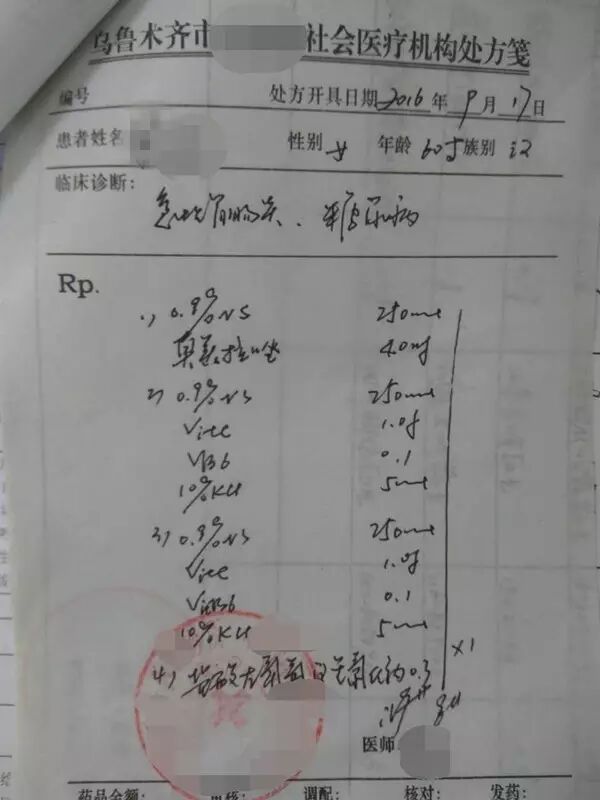 乌鲁木齐市 社会医疗机构处方笺
编号 处方开具日期 2016 年 9 月 17 日
患者姓名 性别 女 年龄 60岁 族别 汉
临床诊断:
急性胃肠炎、糖尿病
Rp.
1) 0.9% NS 250ml
奥美拉唑 40mg
2) 0.9% NS 250ml
Vitc 1.0g
VB6 0.1
10% KCl 5ml
3) 0.9% NS 250ml
Vitc 1.0g
VitB6 0.1
10% KCl 5ml
4) 门冬氨酸 0.3
×1
医师
药品金额: 审核: 调配: 核对: 发药: